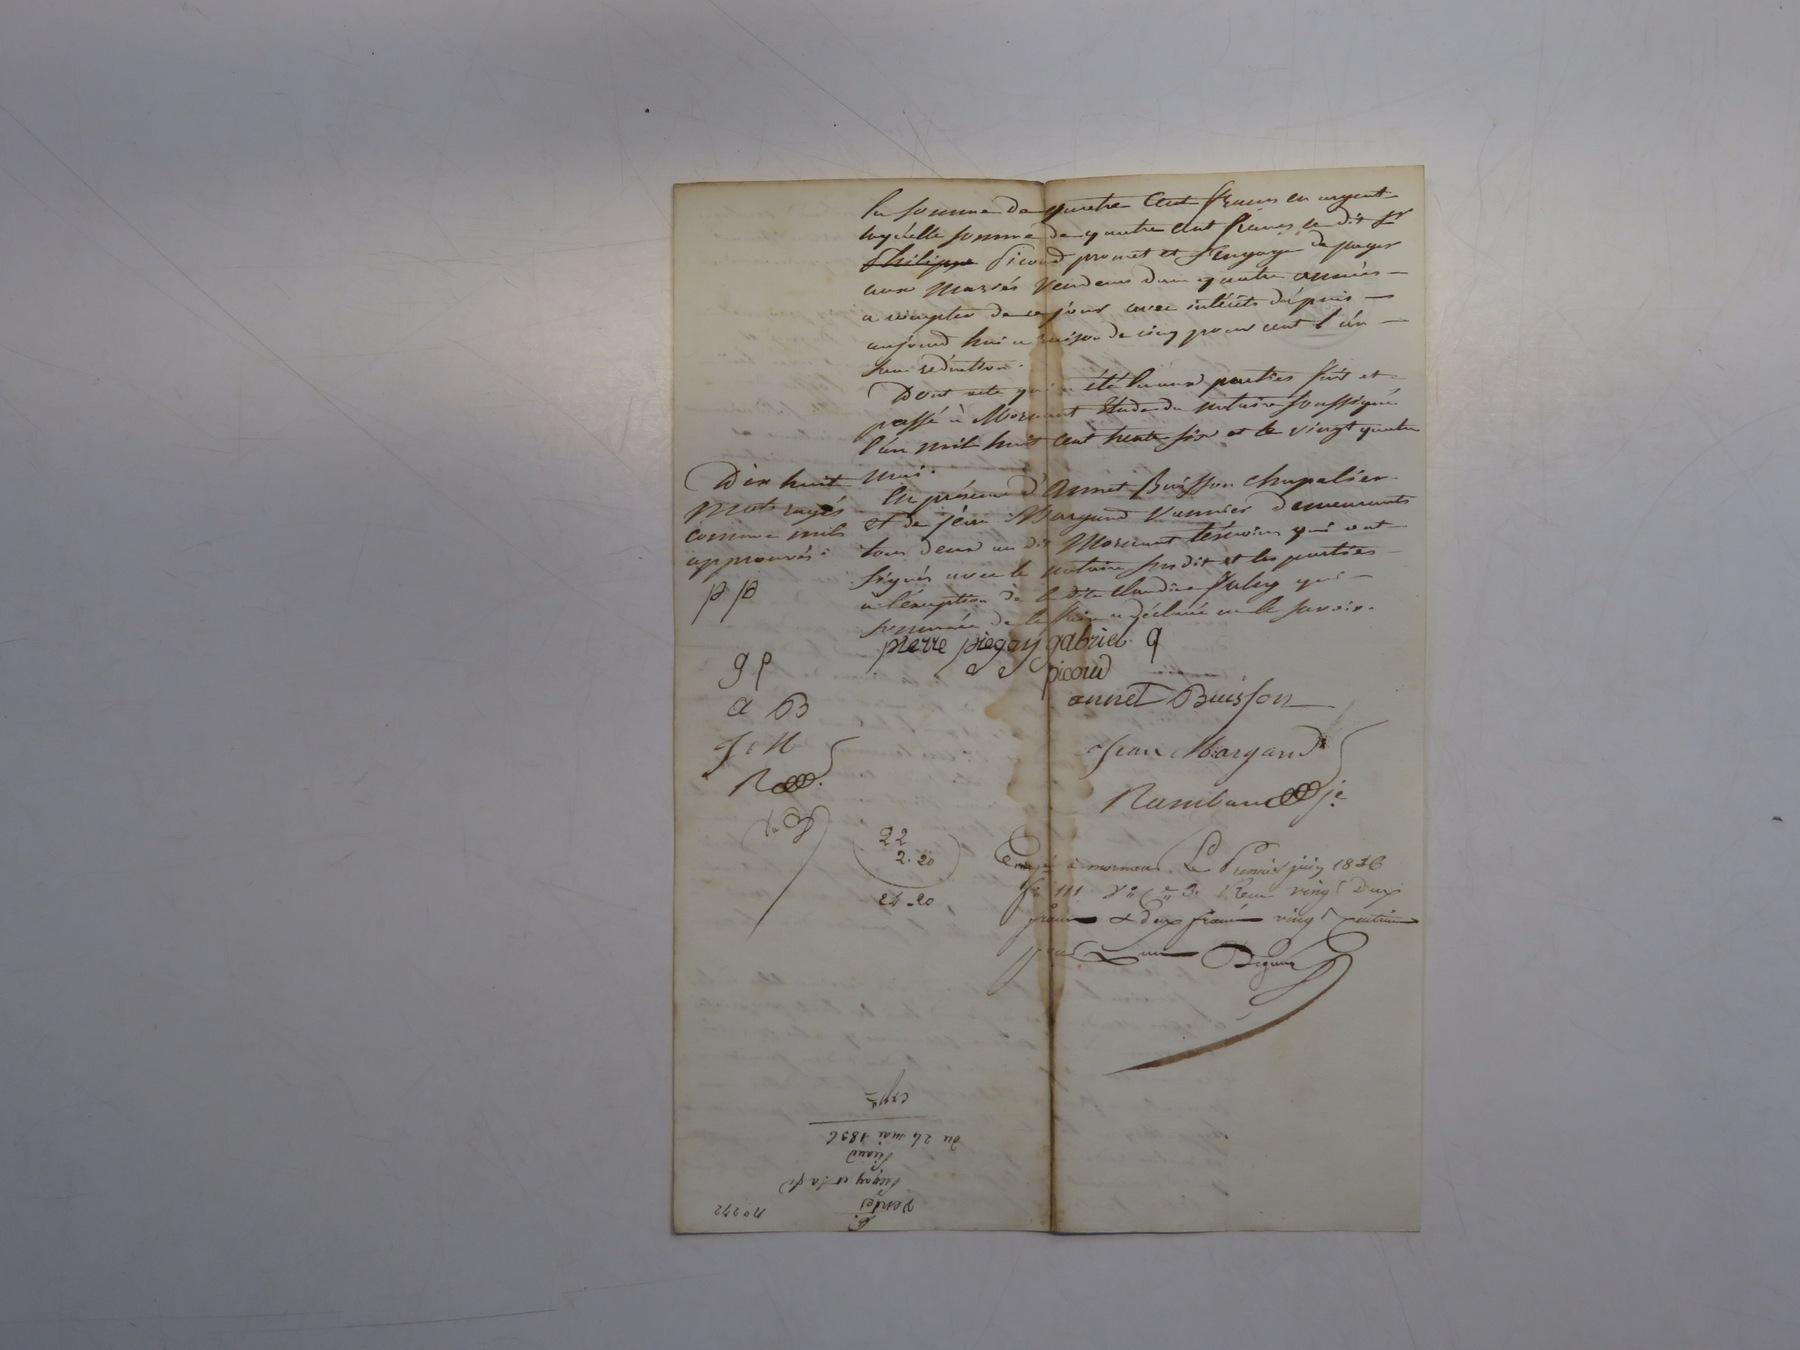 la somme de quatre cent francs en argent
laquelle somme de quatre cent francs le dit Sr
Philippe Picoud promet et s'engage de payer
aux mariés vendeurs dans quatre années
a compter de ce jour avec intérêts dépuis
aujourd hui a raison de cinq pour cent l'an
sans réduction.
Dont acte qui a été lu aux parties fait et
passé à Mornant Etude du notaire soussigné
l'an mil huit cent trente six et le vingt quatre
mai.
En présence d'Annet Buisson chapelier
et de jean Margand vannier demeurants
tous deux au dit Mornant temoins qui ont
signés avec le notaire susdit et les parties
a l'exception de la dite Claudine qui
sommée de le faire a déclaré ne le savoir.
Dix huit
mots rayés
comme nuls
approuvés.
p p
g p
a B
J M
R
pierre piegay gabriel
picoud
annet Buisson
Jean Margand
Rambaud
22
2.20
24.20
à mornant Le Premier juin 1836
fo 111 vingt Deux
francs & deux francs vingt centimes
pour
No 272
Vente
Piegay et la fe
Picoud
du 24 mai 1836
expée